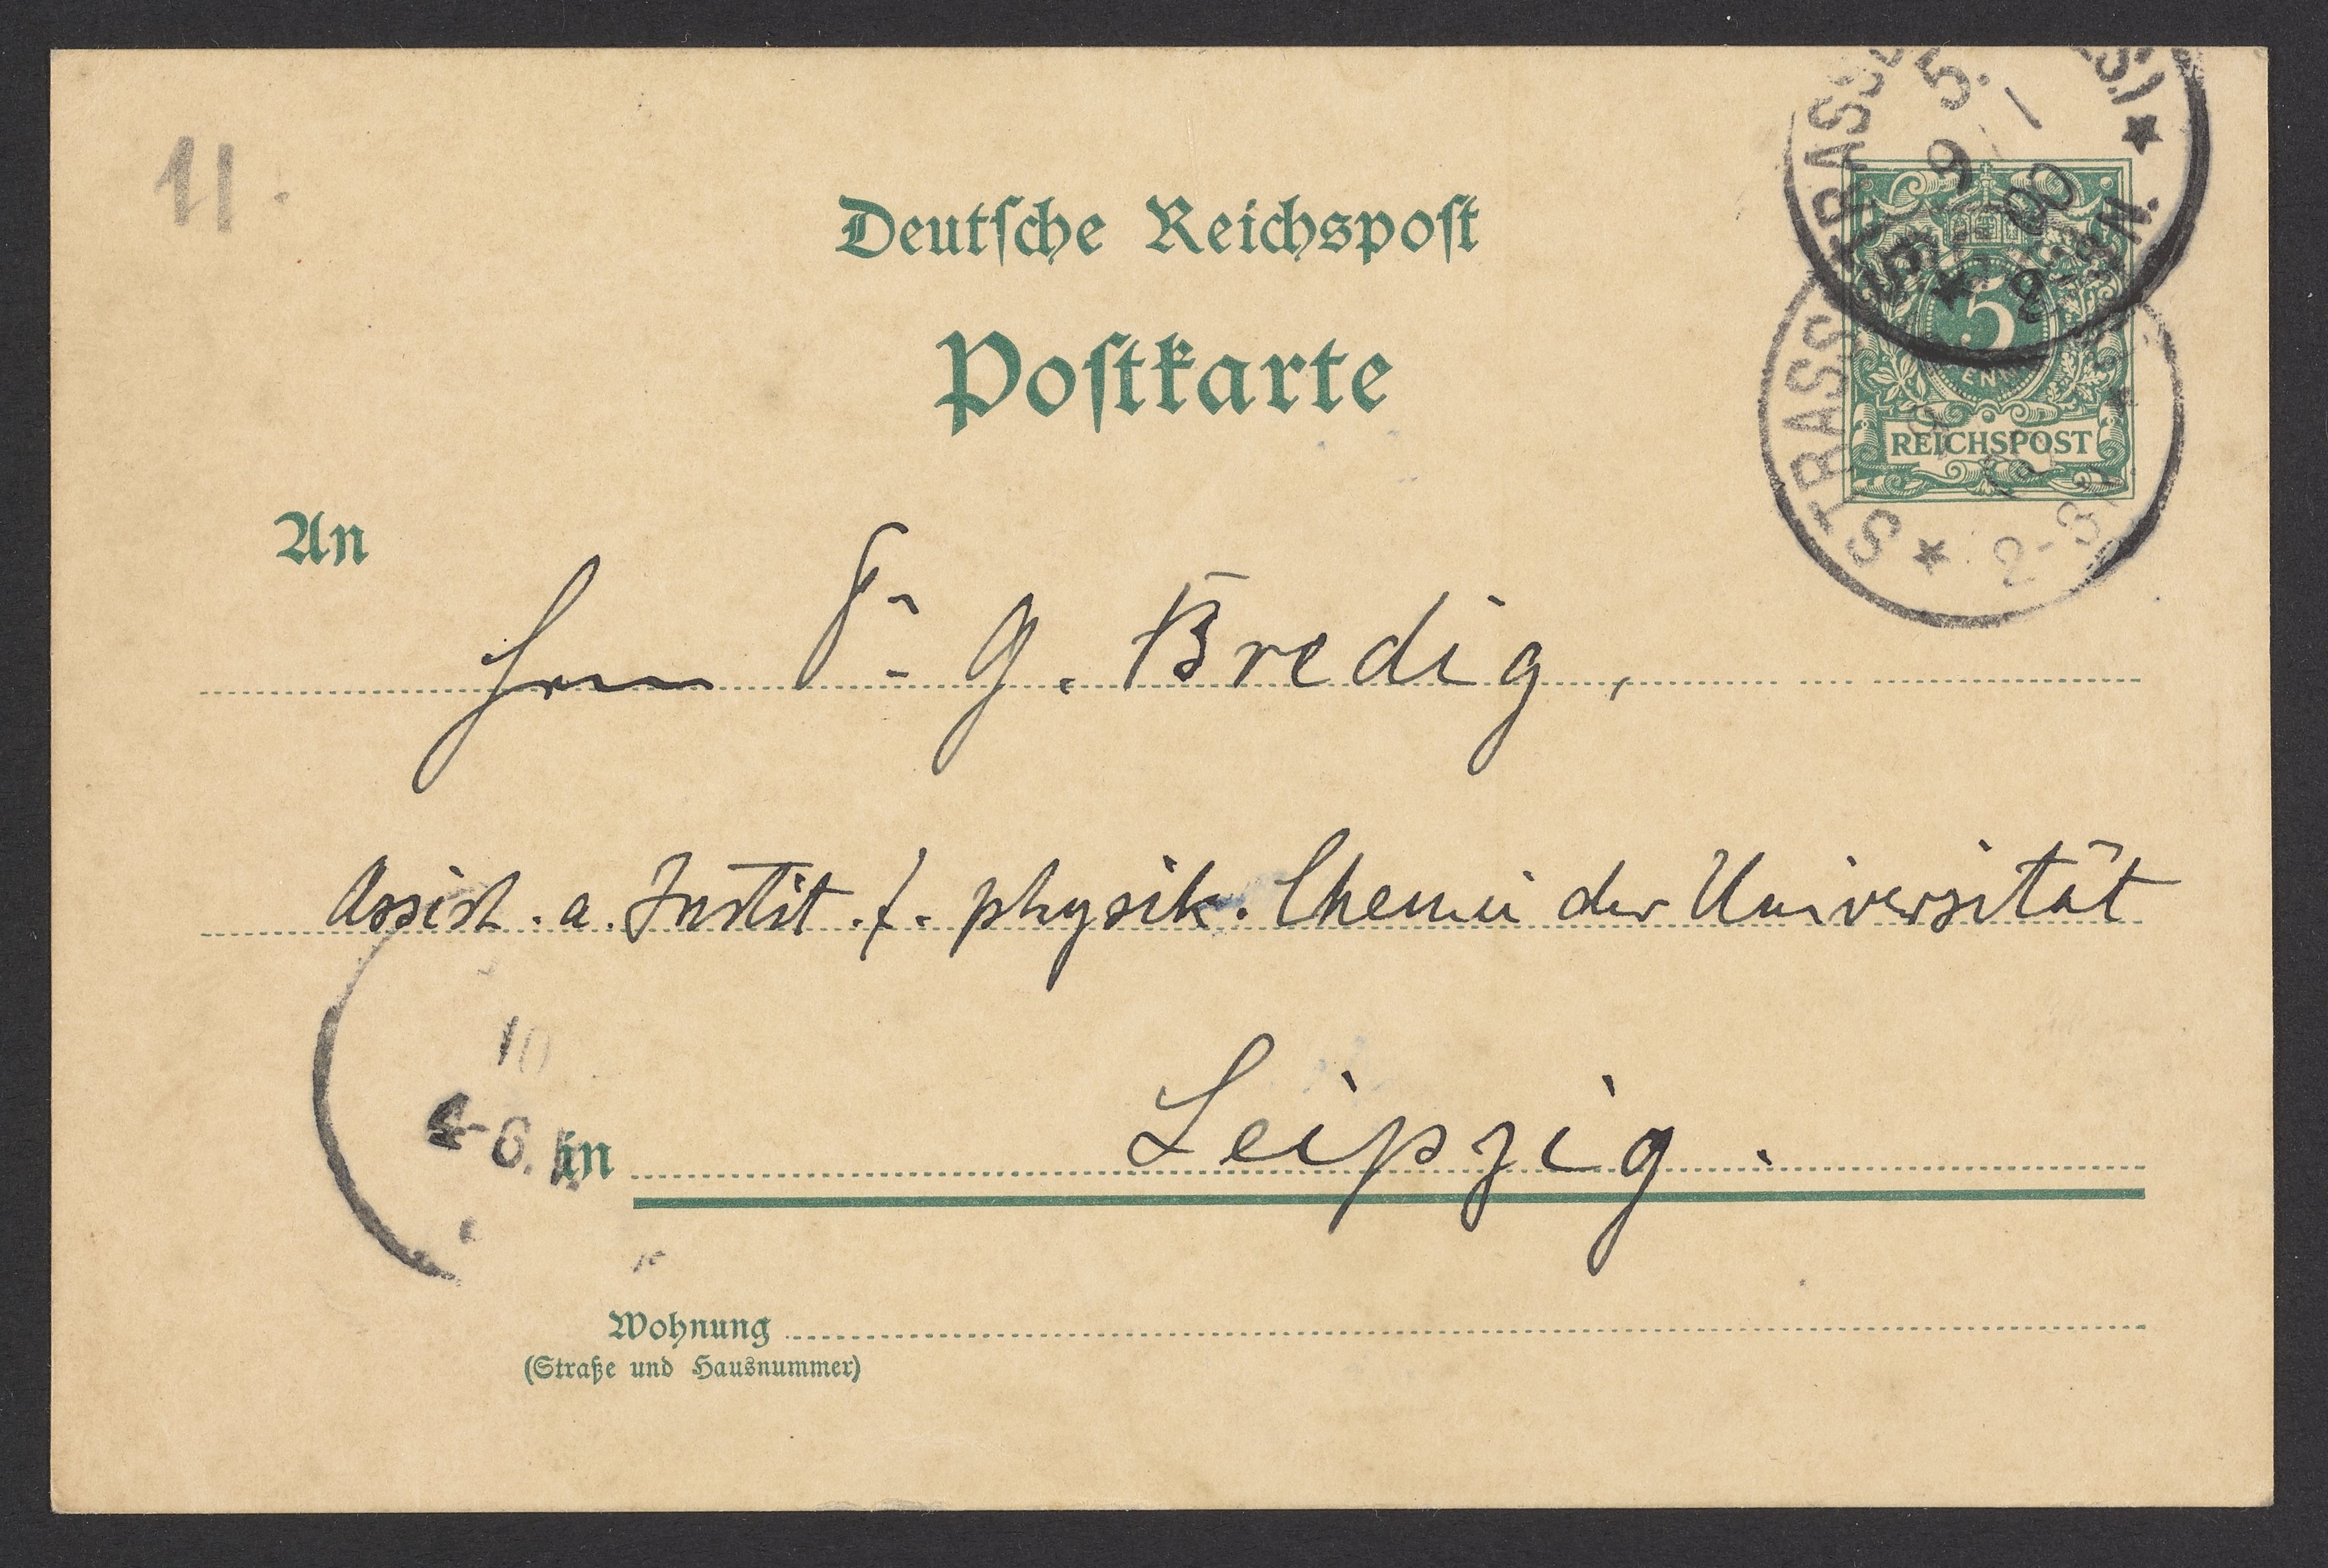 11.
Deutsche Reichspost
Postkarte
STRASSB
5.
9
00
8-9 N.
5
REICHSPOST
STRASS
2-3 N
An
Herrn Dr G. Bredig,
Assist. a. Instit. f. physik. Chemie der Universität
10
4-6. N.
in Leipzig.
Wohnung
(Straße und Hausnummer)